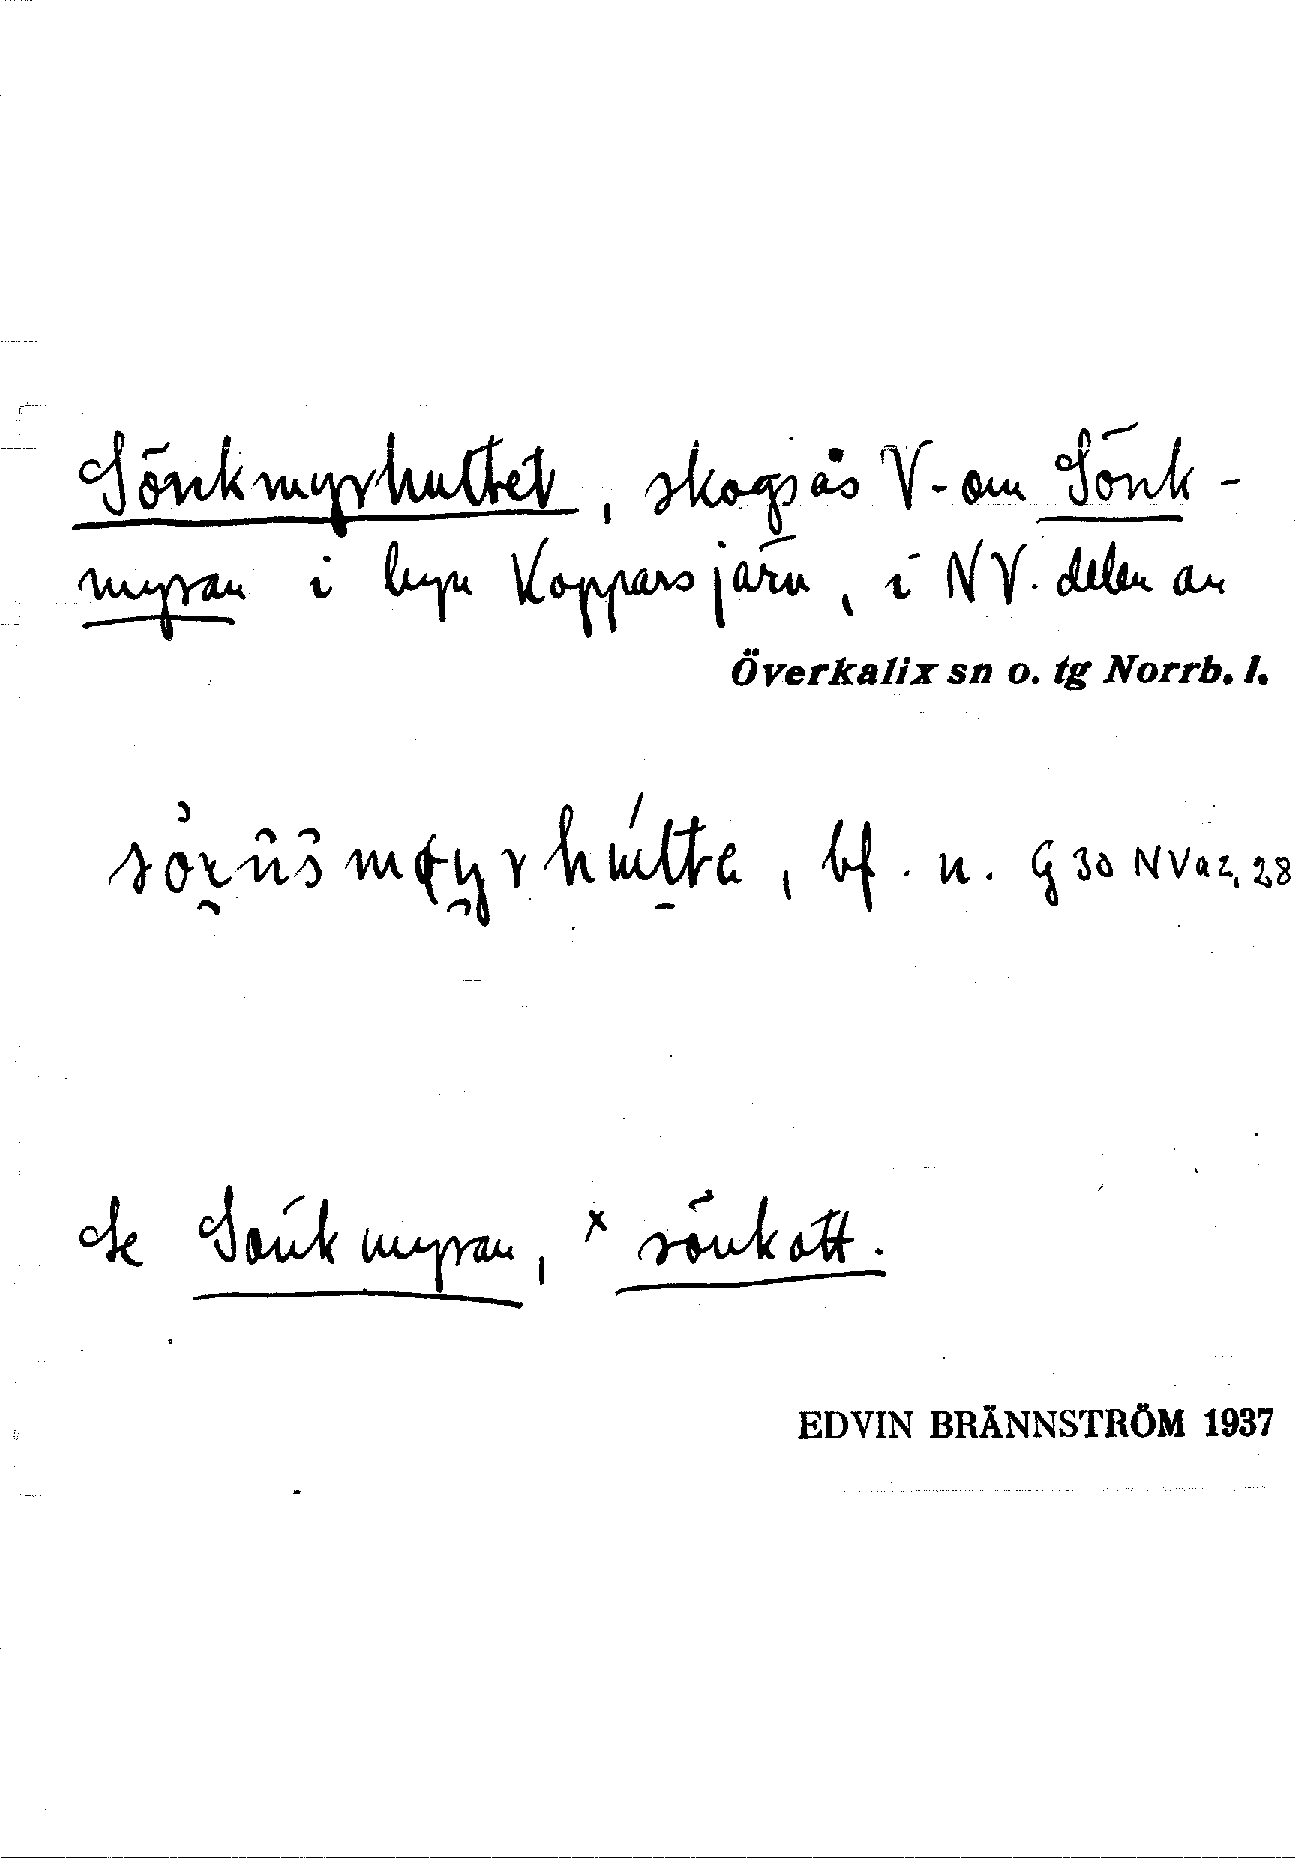 Sönkmyrhultet, skogsås V. om Sönk-
myran i byn Kopparsjärn, i NV. delen av
Överkalix sn o. tg Norrb. l.
bf. n. G 30 NV a 2, 28
Se Sönkmyran, ˣ sönkott.
EDVIN BRÄNNSTRÖM 1937